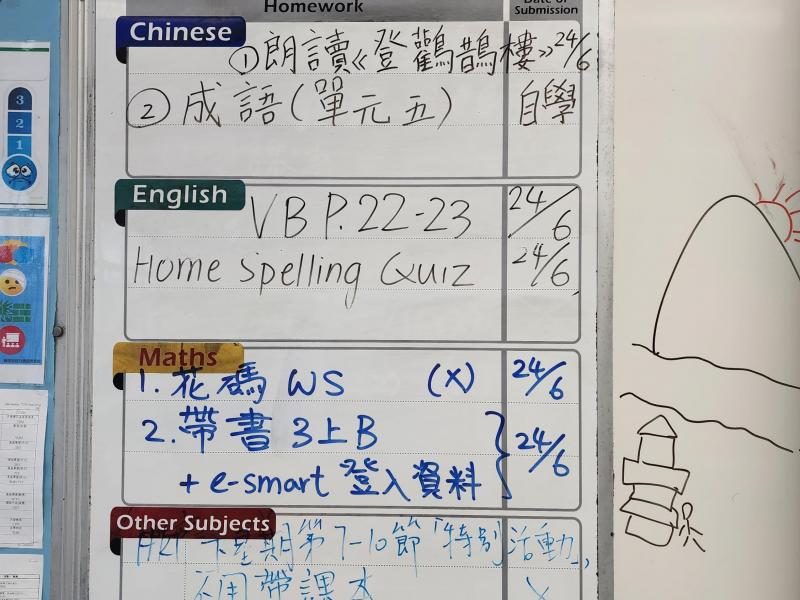 Homework
Date of
Submission
Chinese
①朗讀《登鸛鵲樓》 24/6
②成語(單元五) 自學
English
VB P.22-23 24/6
Home Spelling Quiz 24/6
Maths
1. 花碼 WS (X) 24/6
2. 帶書 3上B
+ e-smart 登入資料 24/6
Other Subjects
下星期第7-10節「特別活動」,
不用帶課本
3
2
1